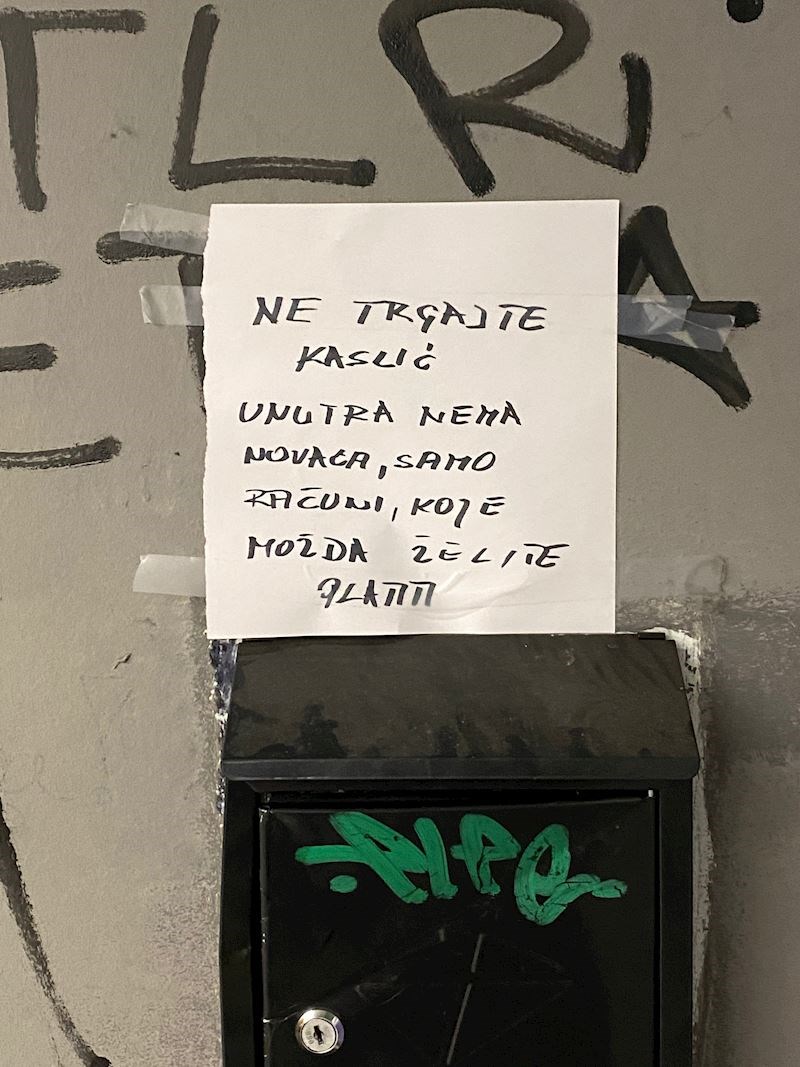 TLR
NE TRGAJTE
KASLIĆ
UNUTRA NEMA
NOVACA, SAMO
RAČUNI, KOJE
MOŽDA ŽELITE
PLATITI